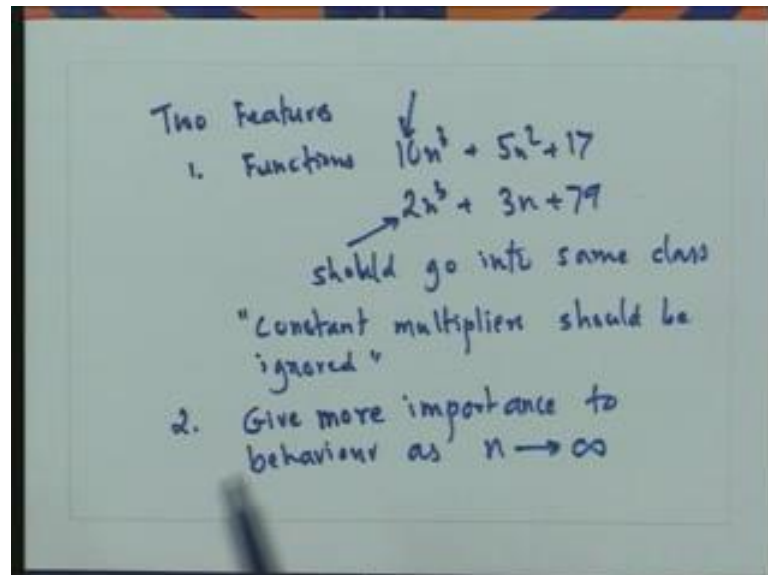 Two Features
1. Functions 10n³ + 5n² + 17
2n³ + 3n + 79
should go into same class
"constant multipliers should be
ignored"
2. Give more importance to
behaviour as n → ∞